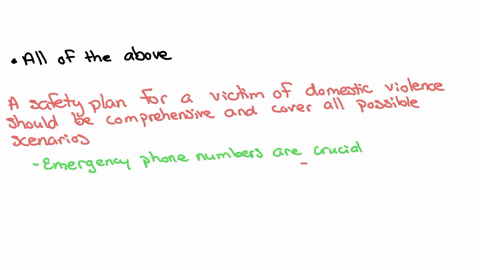 • All of the above
A safety plan for a victim of domestic violence
should be comprehensive and cover all possible
scenarios
- Emergency phone numbers are crucial